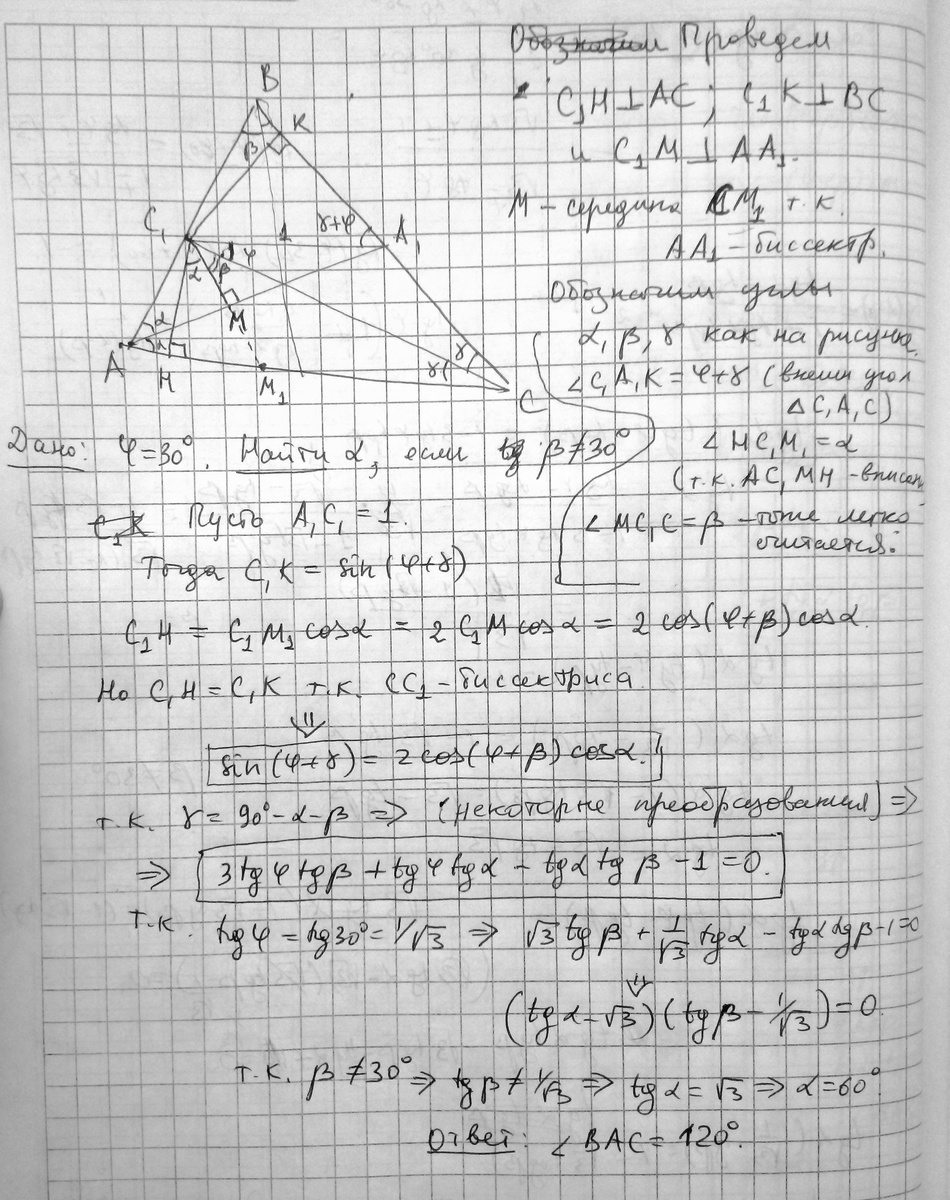 Проведем
C₁H ⊥ AC; C₁K ⊥ BC
и C₁M ⊥ AA₁.
M – середина CM₁ т.к.
AA₁ – биссектр.
Обозначим углы
α, β, γ как на рисунке.
∠C₁A₁K = φ+γ (внешн угол
△C₁A₁C)
∠HC₁M₁ = α
(т.к. AC₁MH – вписан
∠MC₁C = β – тоже легко
считается.
B
K
β
C₁
γ+φ
A₁
1
φ
α
β
M
α
α
A
H
M₁
γ
γ
C
Дано: φ=30°. Найти α, если β≠30°
Пусть A₁C₁ = 1.
Тогда C₁K = sin(φ+γ)
C₁H = C₁M₁ cosα = 2C₁M cosα = 2cos(φ+β)cosα.
Но C₁H = C₁K т.к. CC₁ – биссектриса
⇓
sin(φ+γ) = 2cos(φ+β)cosα.
т.к. γ = 90°-α-β ⇒ (некоторые преобразования) ⇒
⇒ 3tgφtgβ + tgφtgα - tgαtgβ - 1 = 0.
т.к. tgφ = tg30° = 1/√3 ⇒ √3tgβ + 1/√3 tgα - tgαtgβ-1=0
⇓
(tgα-√3)(tgβ-1/√3) = 0.
т.к. β≠30° ⇒ tgβ≠1/√3 ⇒ tgα = √3 ⇒ α=60°
Ответ: ∠BAC = 120°.